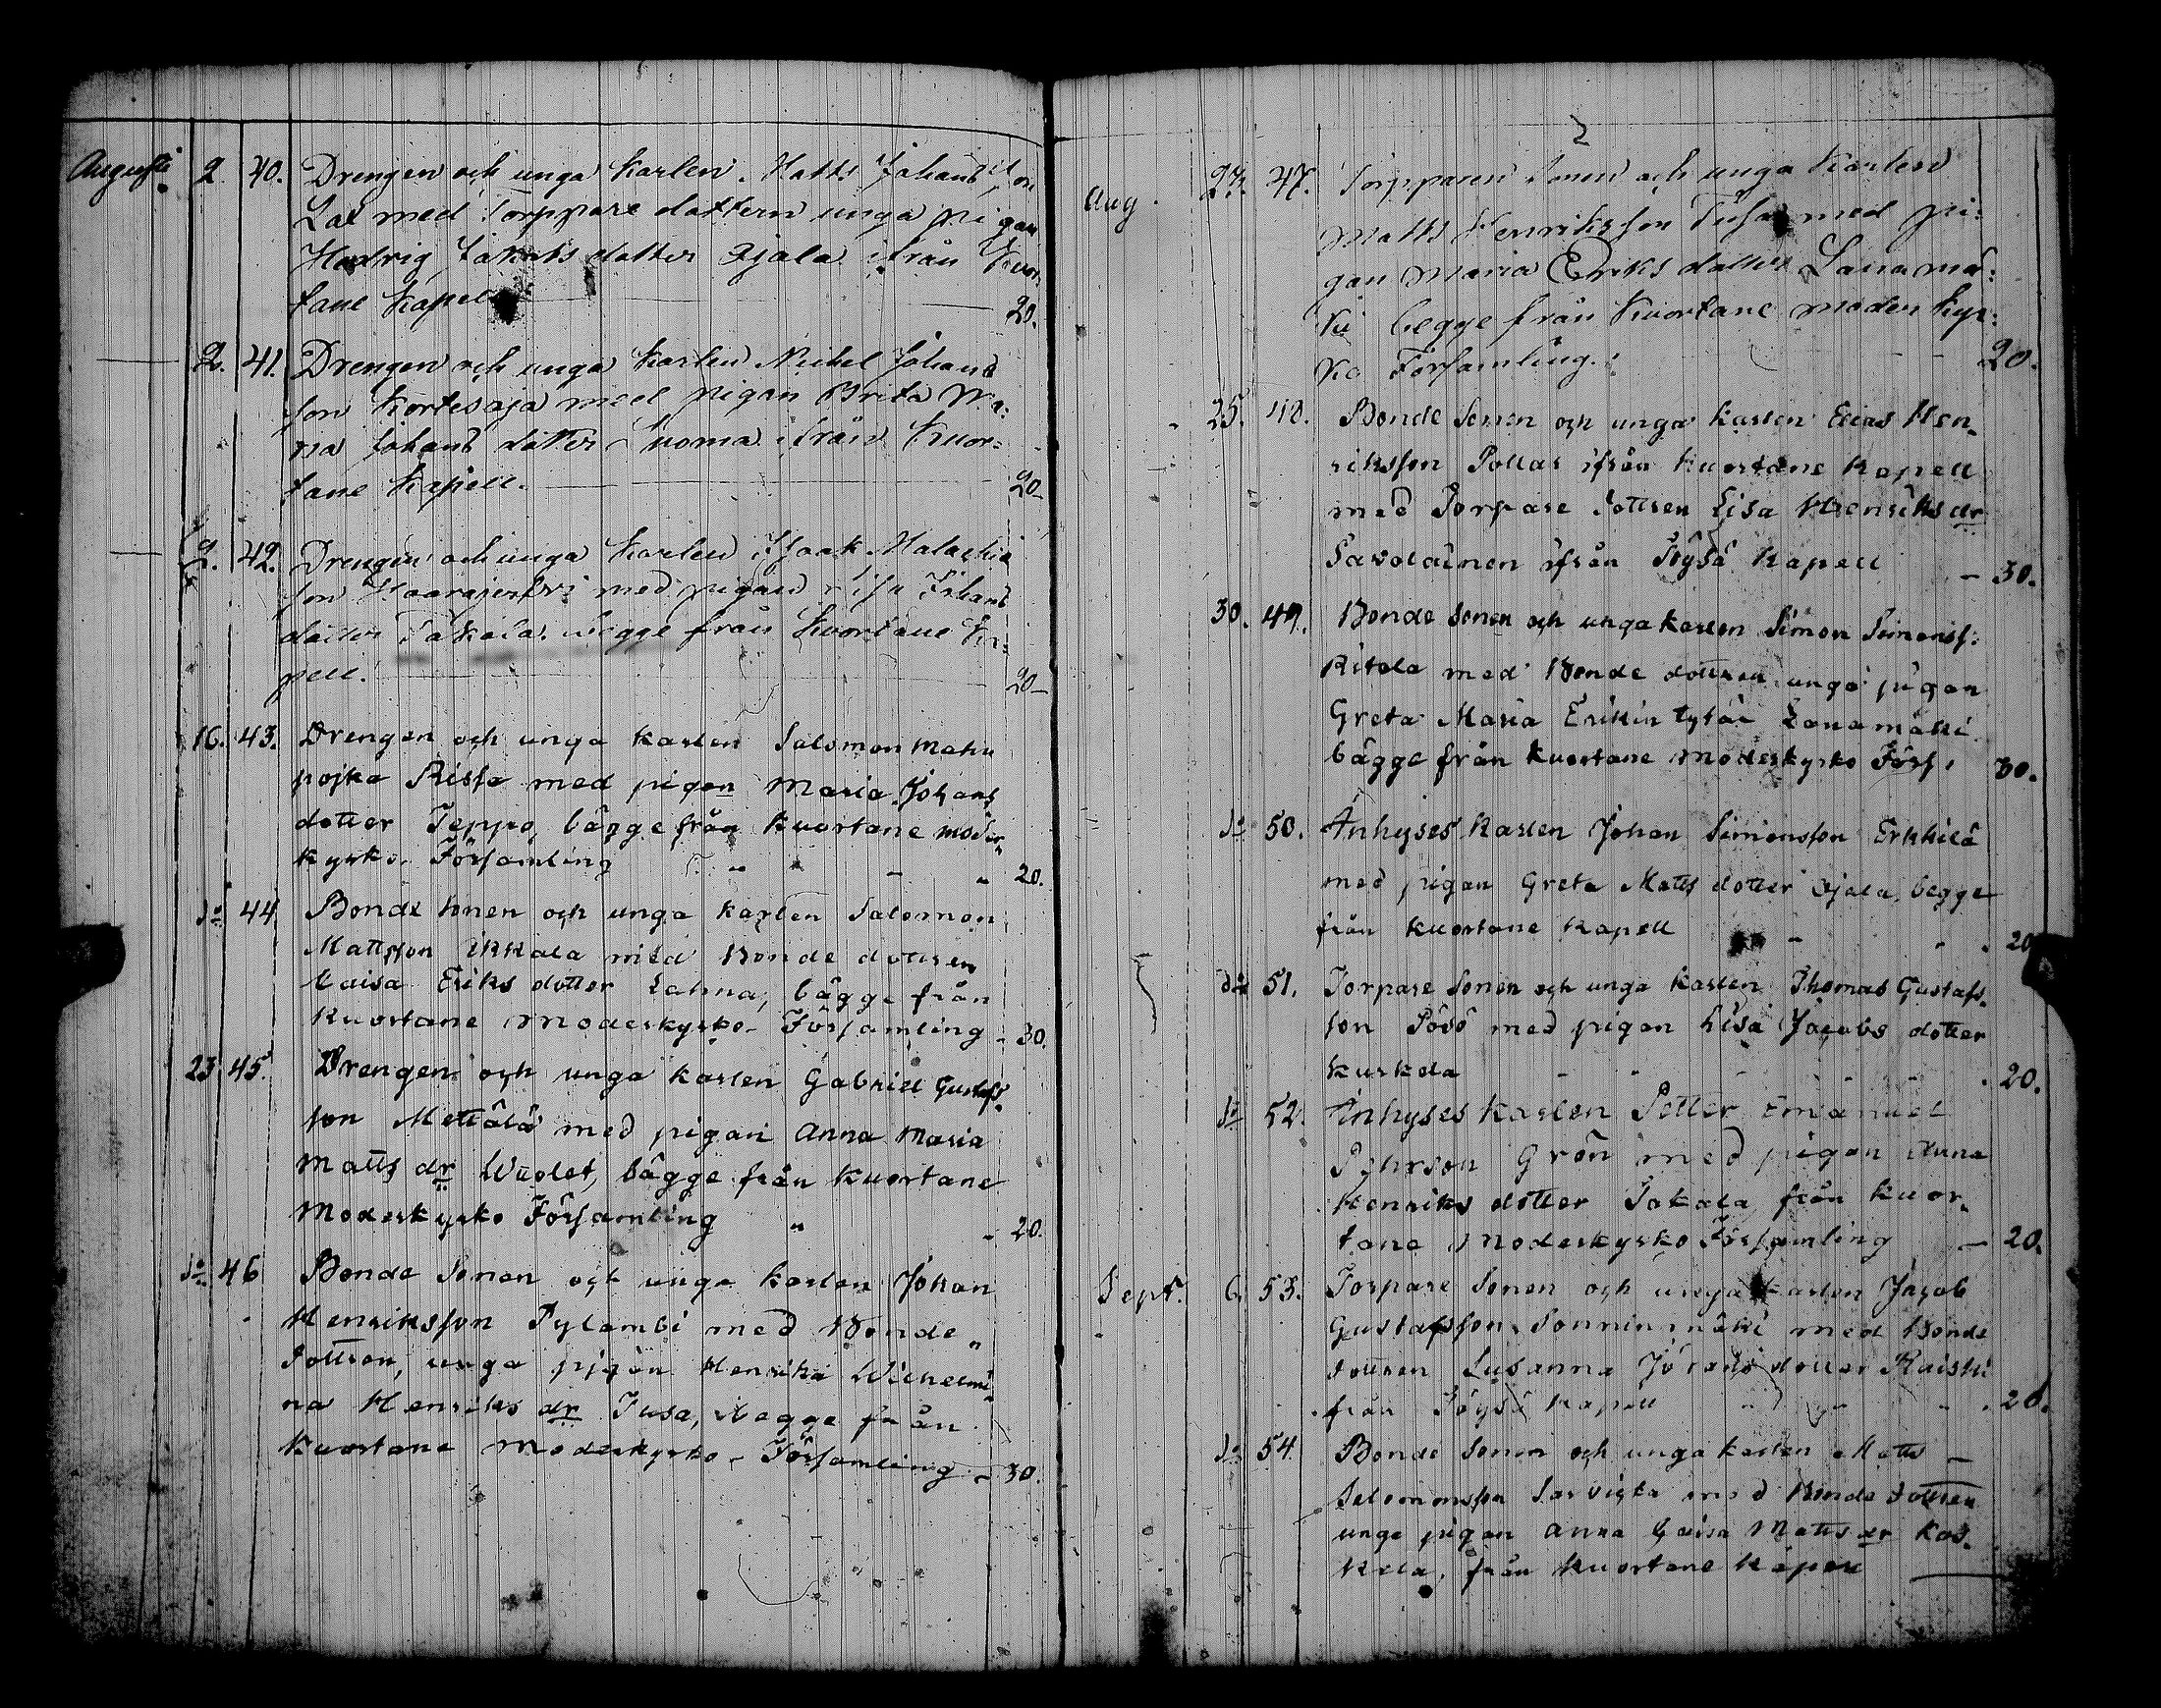 Augusti 2. 40. Drengen och unga Karlen Matts Johansson
Lat med Torppare dottern unga pigan
Hedvig Jakobs dotter Ojala ifrån Kuor-
tane Kapell 20.
2. 41. Drengen och unga Karlen Mickel Johans
son Kortesoja med pigan Brita Ma:
ria Johans dotter Luoma ifrån Kuor=
tane Kapell. 20-
2. 42. Drengen och unga Karlen Isaak Malachia
son Haarajerfvi med pigan Lisa Johans
dotter Takala begge från Kuortane Ka=
pell. 20-
16. 43. Drengen och unga karlen Salomon Mahu
pojka Rissa med pigan Maria Johans
dotter Teppo, bägge från Kuortane moder
kyrko Församling 20.
do 44 Bonde sonen och unga karlen Salomon
Mattsson Ikkala med Bonde dottren
Caisa Eriks dotter Lahna, bägge från
Kuortane Moderkyrko Församling - 30.
23 45. Drengen och unga karlen Gabriel Gustafs
son Mettälä med pigan Anna Maria
Matts dr Wuolet, bägge från Kuortane
Moderkyrko Församling " - 20.
do 46 Bonde Sonen och unga karlen Johan
Henriksson Pylambi med Bonde
Dottren, unga pigan Henrika Wilhelmi
na Henriks dr Tusa, begge från
Kuortane Moderkyrko Församling - 30.
Aug. 23. 47. Torpparen Sonen och unga Karlen
Matts Henriksson Tusa med pi:
gan Maria Eriks dotter Lanamä:
ki begge från Kuortane moder kyr:
ko Församling. 20.
25. 48. Bonde Sonen och unga karlen Elias Hen-
riksson Pollar ifrån Kuortane Kapell
med Torpare Dottren Lisa Henriks dr
Savolainen ifrån Töysä Kapell - 30.
30. 49. Bonde Sonen och unga karlen Simon Simonss:
Ritola med Bonde dottren unga pigan
Greta Maria Erikin tytär Lanamäki
bägge från Kuortane Moderkyrko Förs. 30.
do 50. Inhyses karlen Johan Simonsson Erkkilä
med pigan Greta Matts dotter Ojala, begge
från Kuortane Kapell - - . 20
do 51. Torpare Sonen och unga karlen Thomas Gustafs-
son Pösö med pigan Lisa Jacobs dotter
Kuskola - - - - 20.
do 52. Inhyses karlen Petter Emanuel
Pehrson Grön med pigan Anna
Henriks dotter Takala från Kuor-
tane Moderkyrko Församling - 20.
Sept. 6. 53. Torpare Sonen och unga karlen Jacob
Gustafsson Sonninmäki med Bonde
dottren Susanna dotter
från Töysä Kapell - - - 20.
do 54. Bonde Sonen och unga karlen Matts -
Salomonsson Sarvista med Bonde Dottren
unga pigan Anna Caisa Matts dr Kos-
kela, från Kuortane Kapell